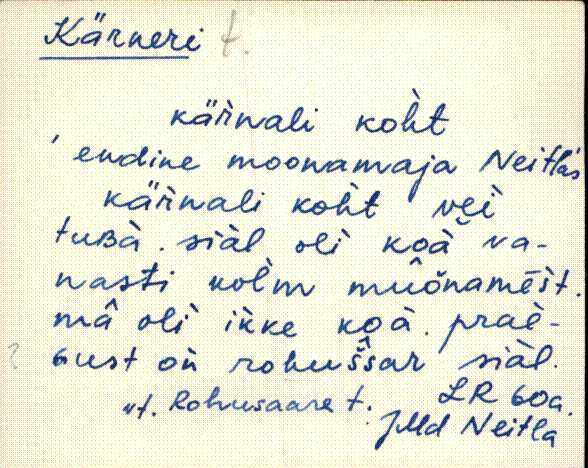 Kärneri t.
kär̀nali koh̀t
'endine moonamaja Neitlàs
kär̀nali koh̀t veì
tuʙà. siàl oli koà va-
nasti kol̀m muônamèst.
mâ oli ikke koà. praè-
ɢust oǹ rohuššar siàl.
vt. Rohusaare t. LR 60a.
JMd Neitla